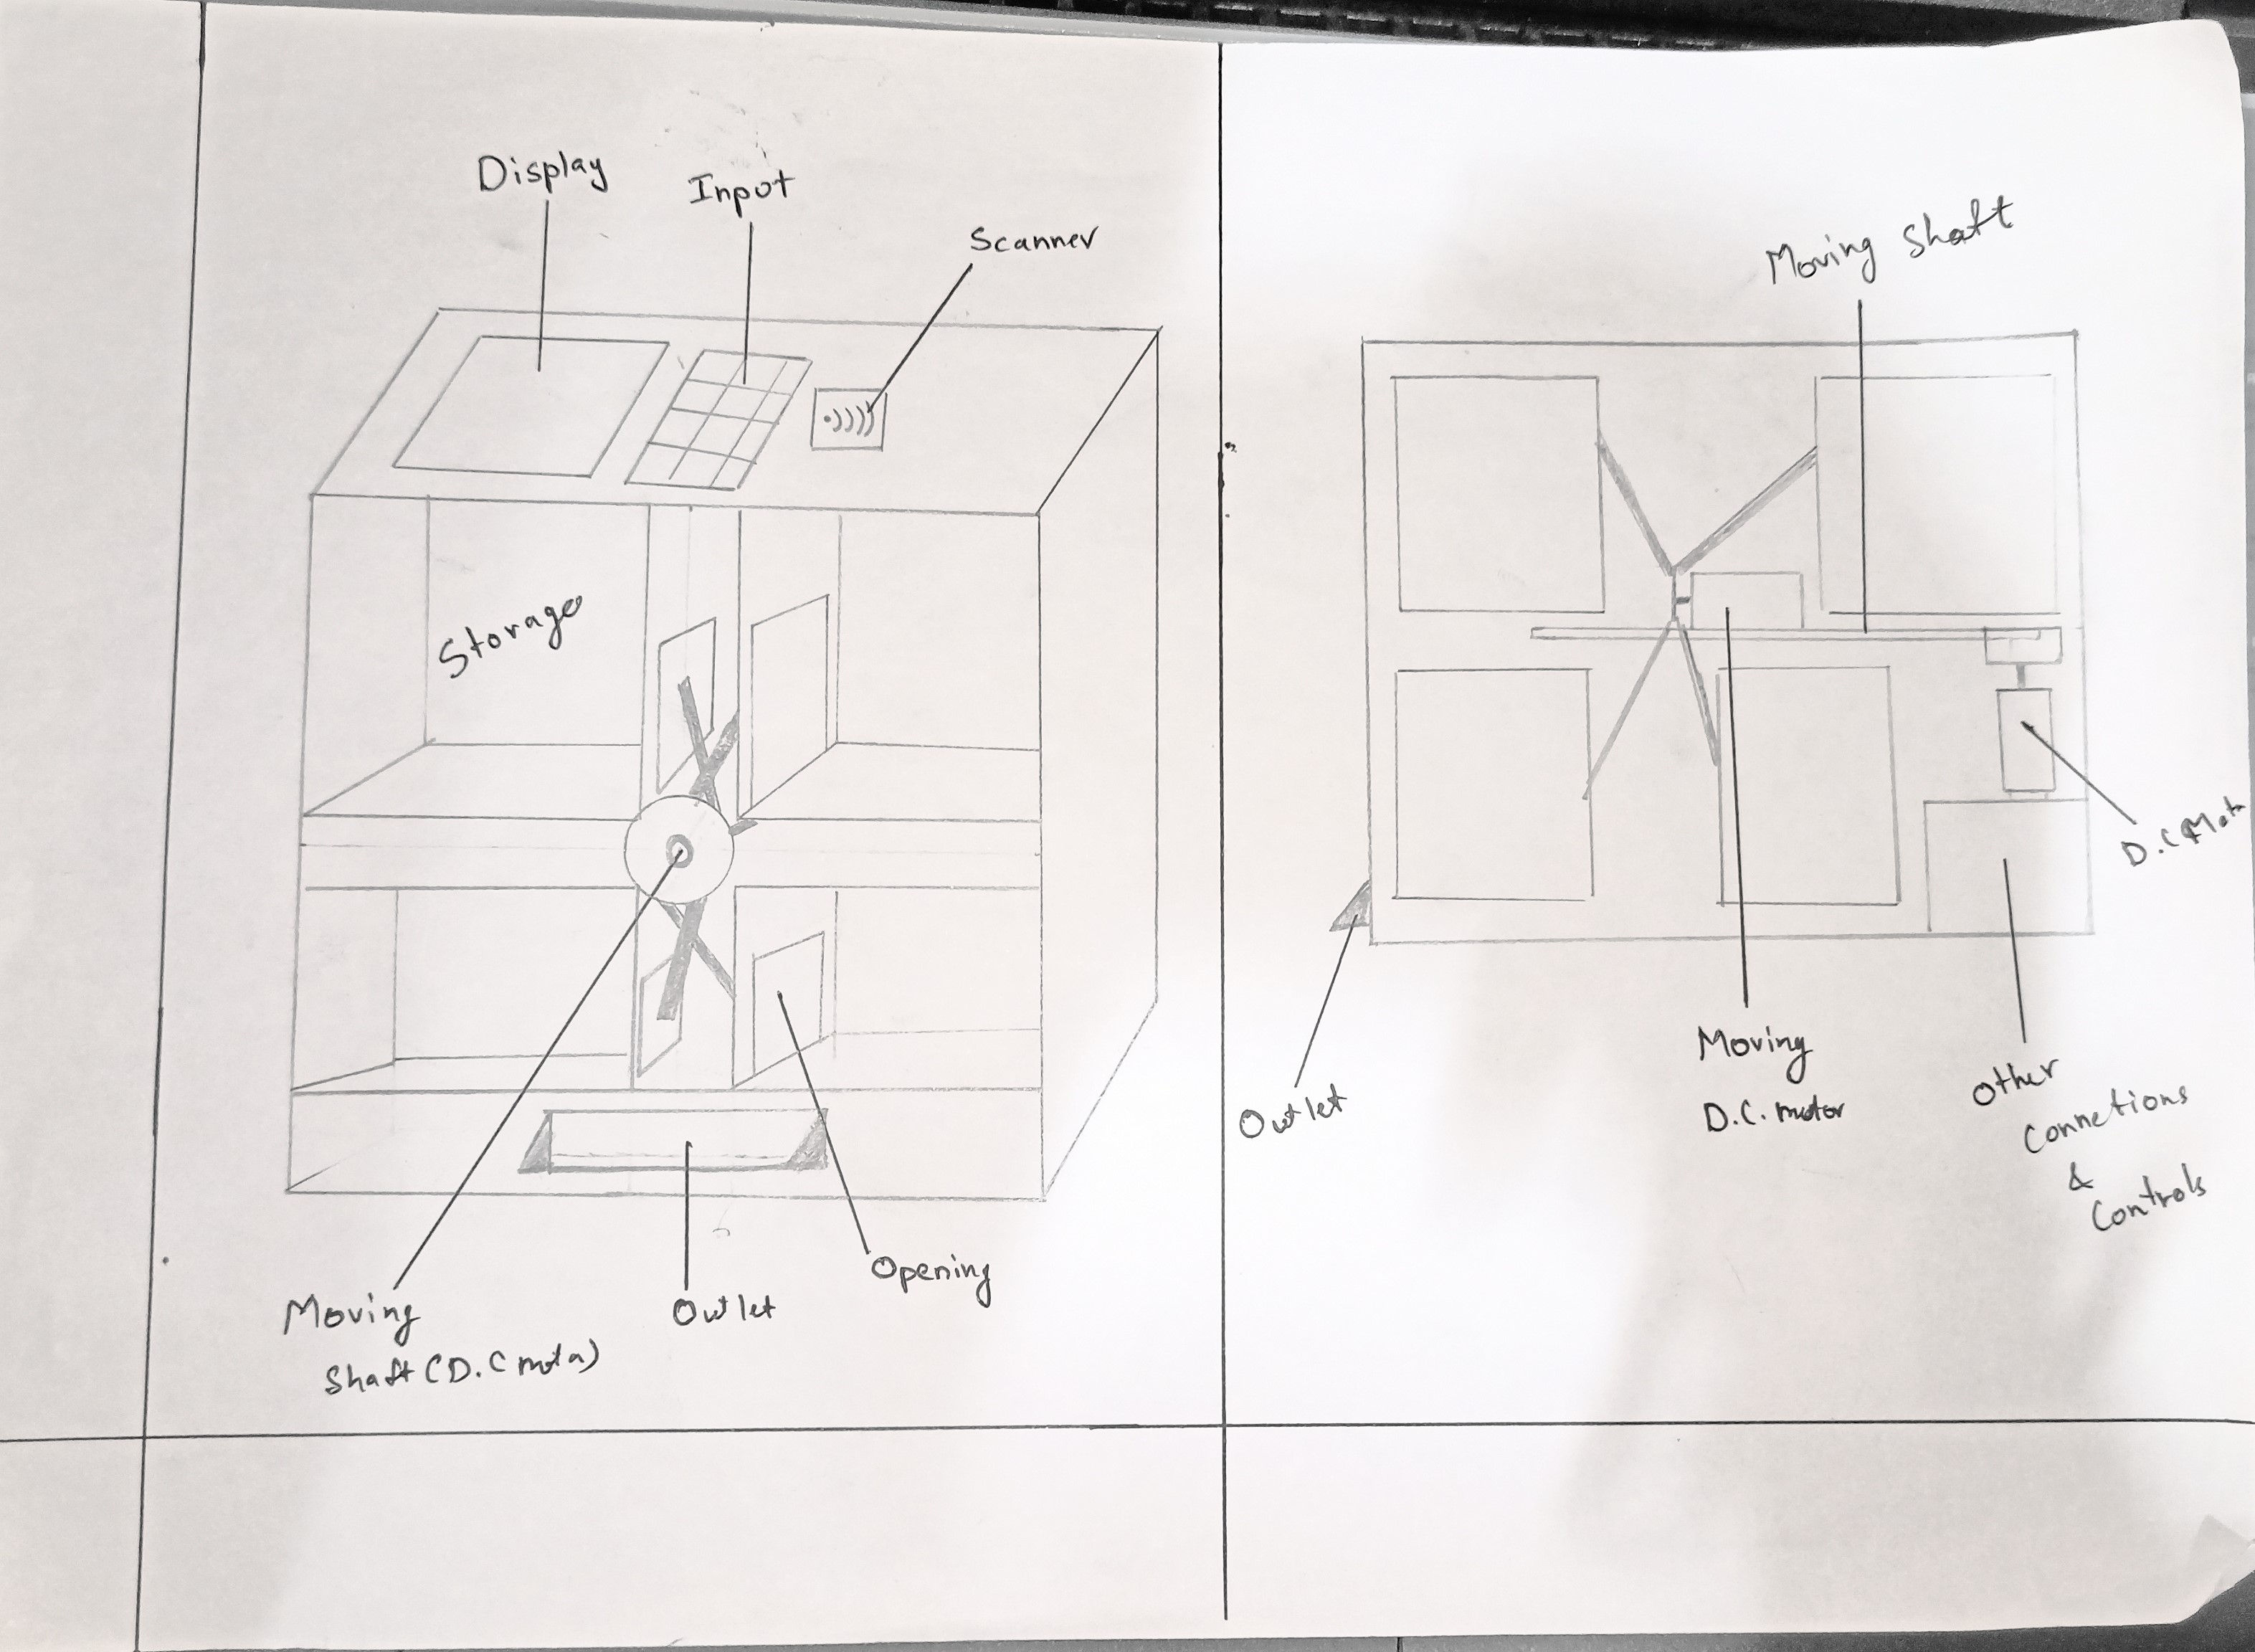 Display
Input
Scanner
Storage
Moving
Shaft (D.C mota)
Outlet
Opening
Moving Shaft
D.C Mota
Outlet
Moving
D.C. motor
Other
Connetions
&
Controls